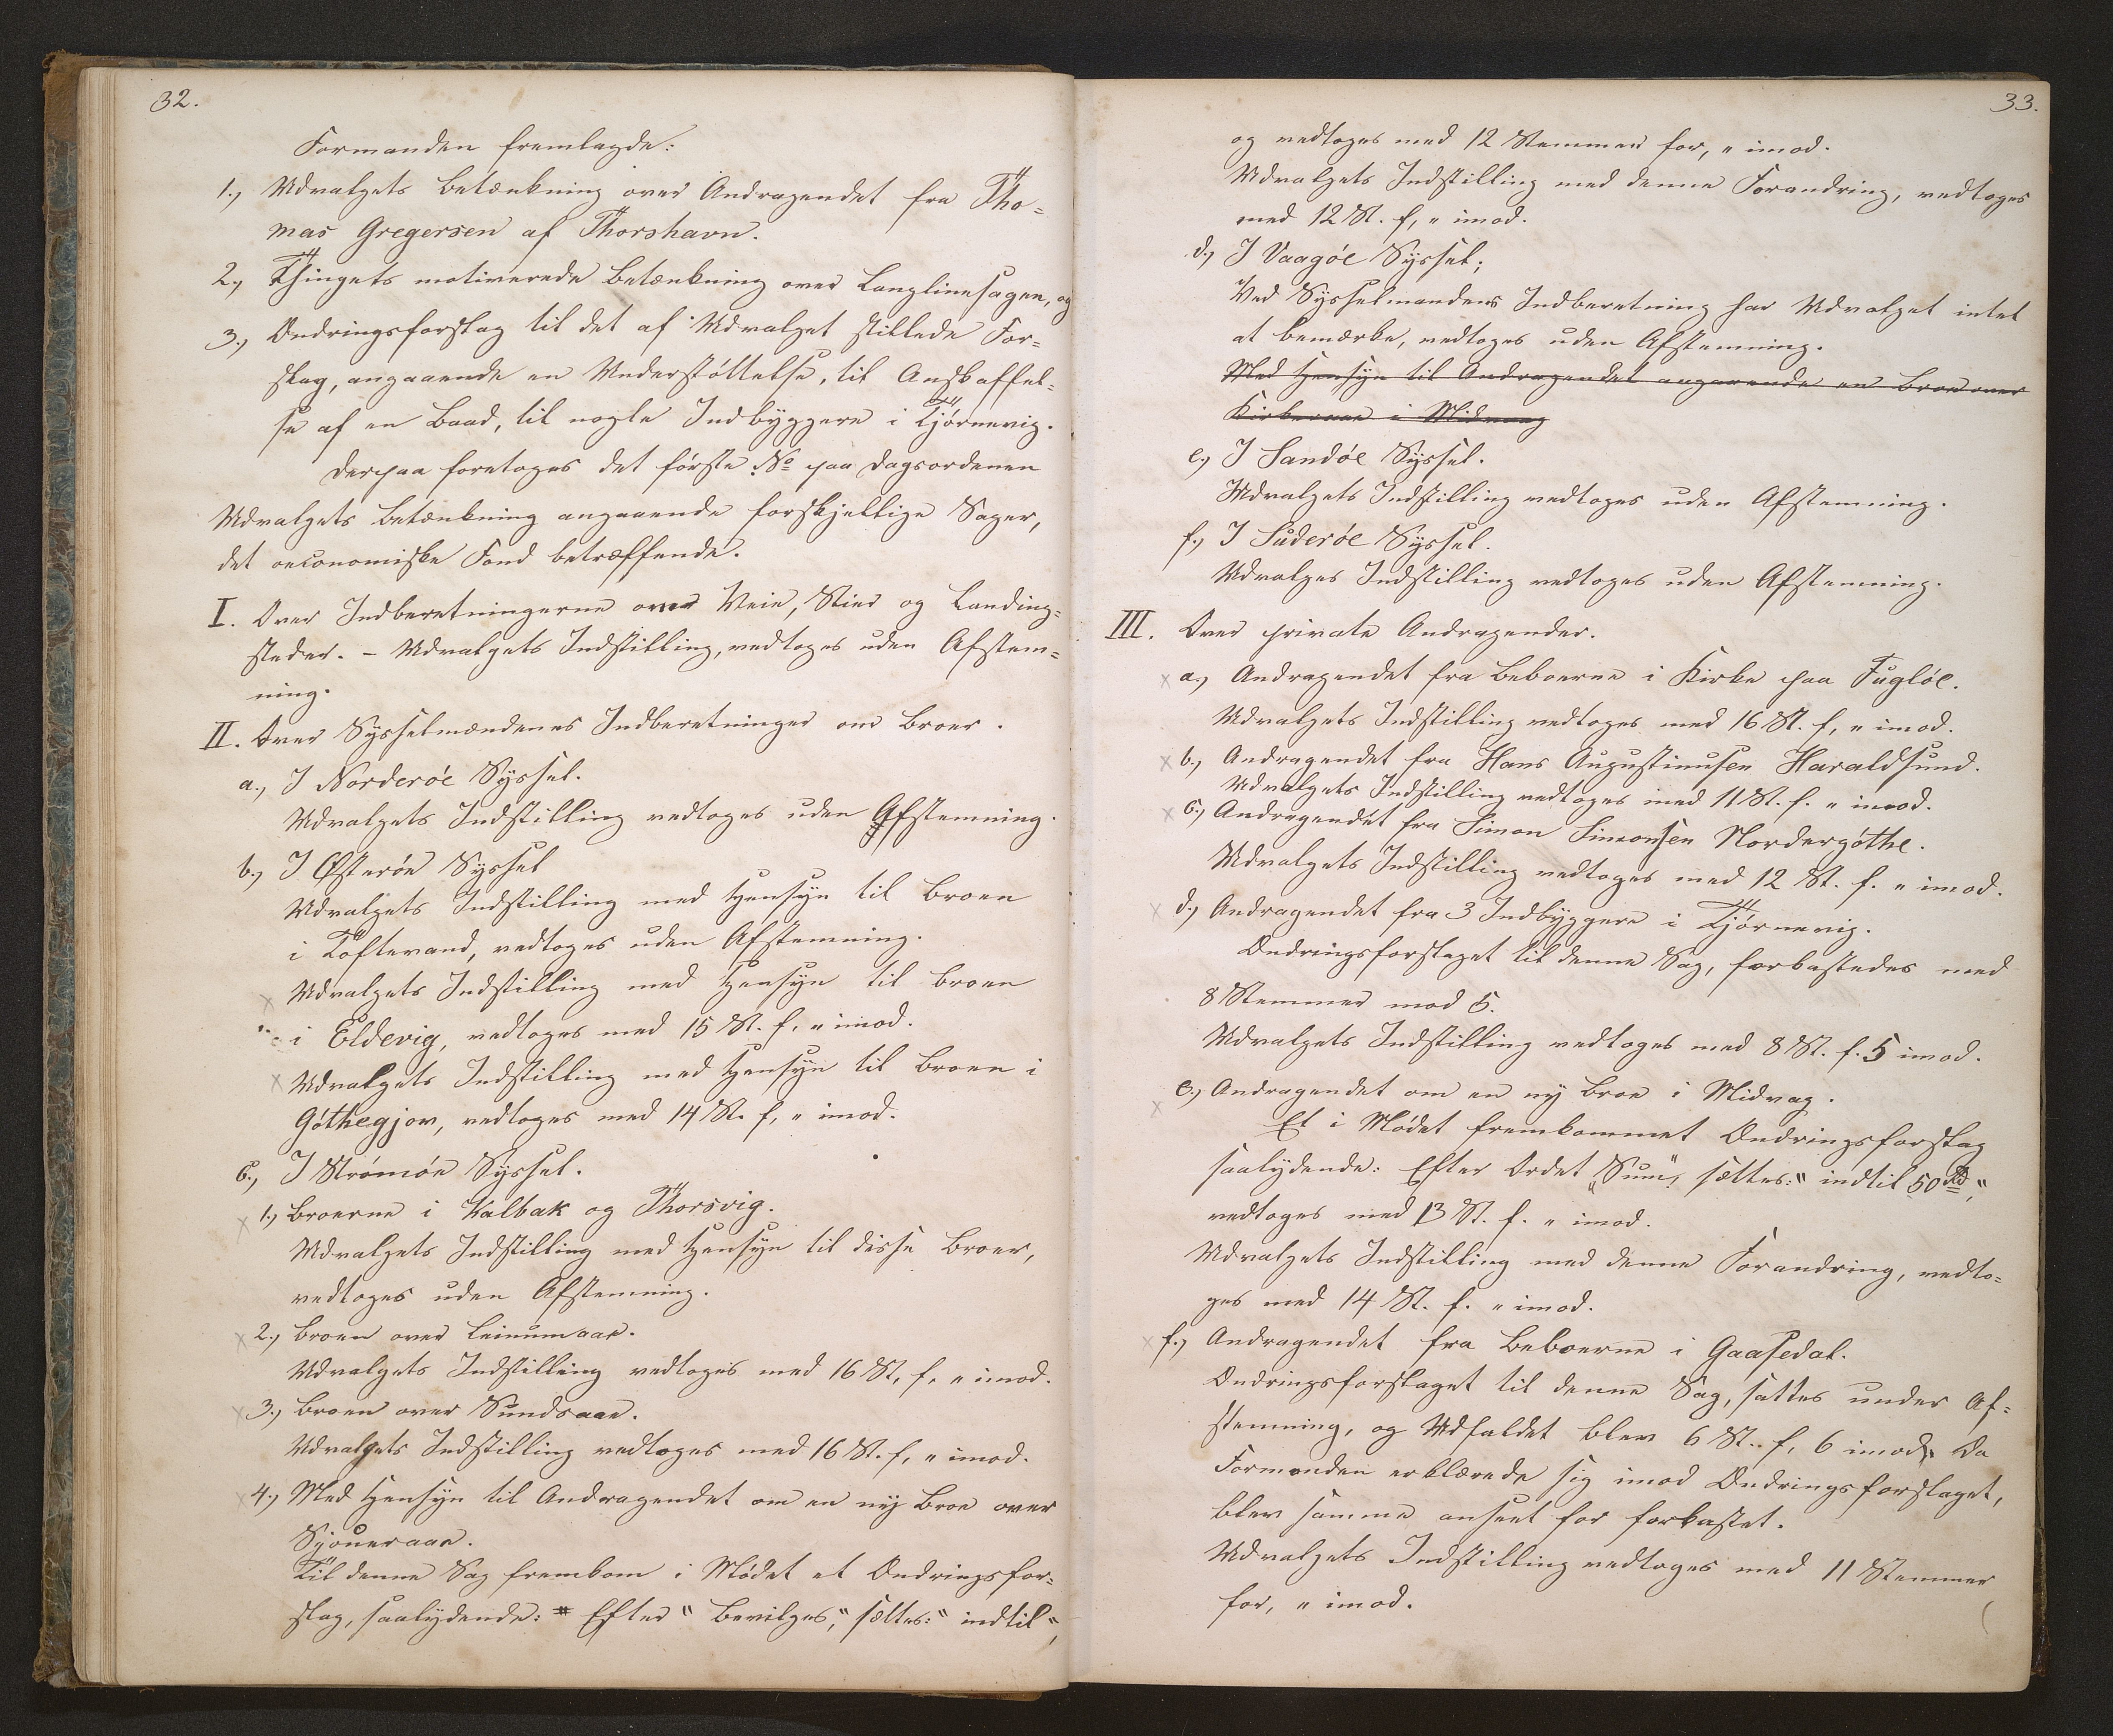 32.
Formanden fremlagde:
1., Udvalgets Betænkning over Andragendet fra Tho=
mas Gregersen af Thorshavn.
2., Thingets motiverede Betænkning over Langlinesagen, og
3., Ændringsforslag til det af Udvalget stillede For=
slag, angaaende en Understøttelse, til Anskaffel=
se af en Baad, til nogle Indbyggere i Tjørnevig.
Derpaa foretoges det første No paa Dagsordenen
Udvalgets Betænkning angaaende forskjellige Sager,
det oeconomiske Fond betræffende.
I. Over Indberetningerne over Veie, Stier og Landing=
steder. – Udvalgets Indstilling, vedtoges uden Afstem=
ning.
II. Over Sysselmændenes Indberetninger om Broer.
a., I Norderøe Syssel.
Udvalgets Indstilling vedtoges uden Afstemning.
b., I Østerøe Syssel
Udvalgets Indstilling med Hensyn til Broen
i Toftevand, vedtoges uden Afstemning.
Udvalgets Indstilling med Hensyn til Broen
i Eldevig, vedtoges med 15 St. f, „ imod.
Udvalgets Indstilling med Hensyn til Broen i
Gøthegjov, vedtoges med 14 St. f, „ imod.
c., I Strømøe Syssel.
1., Broerne i Kalbak og Thorsvig.
Udvalgets Indstilling med Hensyn til disse Broer,
vedtoges uden Afstemning.
2., Broen over Leinumaae.
Udvalgets Indstilling vedtoges med 16 St, f, „ imod.
3., Broen over Sundsaae.
Udvalgets Indstilling vedtoges med 16 St. f, „ imod.
4., Med Hensyn til Andragendet om en ny Broe over
Sjoueraae.
Til denne Sag fremkom i Mødet et Ændringsfor=
slag, saalydende: Efter "bevilges", sættes: "indtil",
33.
og vedtoges med 12 Stemmer for, „ imod.
Udvalgets Indstilling med denne Forandring, vedtoges
med 12 St. f, „ imod.
d., I Vaagøe Syssel;
Ved Sysselmandens Indberetning har Udvalget intet
at bemærke, vedtoges uden Afstemning.
Med Hensyn til Andragendet angaaende en Broe over
Kirkeaae i Midvaag
e., I Sandøe Syssel.
Udvalgets Indstilling vedtoges uden Afstemning.
f., I Suderøe Syssel.
Udvalges Indstilling vedtoges uden Afstemning.
III. Over private Andragender.
a., Andragendet fra Beboerne i Kirke paa Fugløe.
Udvalgets Indstilling vedtoges med 16 St. f, „ imod.
b., Andragendet fra Hans Augustinussen Haraldsund.
Udvalgets Indstilling vedtoges med 11 St. f. „ imod.
c., Andragendet fra Simon Simonsen Nordergøthe.
Udvalgets Indstilling vedtoges med 12 St. f. „ imod.
d., Andragendet fra 3 Indbyggere i Tjørnevig.
Ændringsforslaget til denne Sag, forkastedes med
8 Stemmer mod 5.
Udvalgets Indstilling vedtoges med 8 St. f. 5 imod.
e., Andragendet om en ny Broe i Midvag.
Et i Mødet fremkommet Ændringsforslag
saalydende: Efter Ordet "Sum", sættes: "indtil 50 Rd",
vedtoges med 13 St. f. „ imod.
Udvalgets Indstilling med denne Forandring, vedto=
ges med 14 St. f. „ imod.
f., Andragendet fra Beboerne i Gaasedal.
Ændringsforslaget til denne Sag, sattes under Af=
stemning, og Udfaldet blev 6 St. f, 6 imod. Da
Formanden erklærede sig imod Ændringsforslaget,
blev samme anseet for forkastet.
Udvalgets Indstilling vedtoges med 11 Stemmer
for, „ imod.